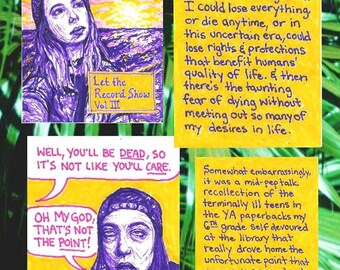 Let the
Record Show
Vol III
I could lose everything,
or die anytime, or in
this uncertain era, could
lose rights & protections
that benefit humans'
quality of life. & then
there's' the taunting
fear of dying without
meeting out so many of
my desires in life.
WELL, YOU'LL BE DEAD, SO
IT'S NOT LIKE YOU'LL CARE.
OH MY GOD,
THAT'S NOT
THE POINT!
Somewhat embarrassingly,
it was a mid-pep talk
recollection of the
terminally ill teens in
the YA paperbacks my
6th grade self devoured
at the library that
really drove home the
unfortunate point that